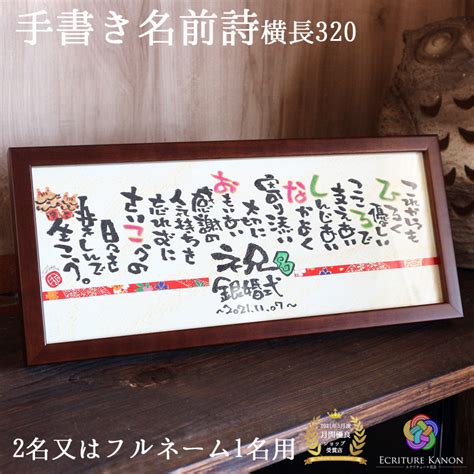 手書き名前詩横長320
これからも
ひろく
優しい
こころで
支えあい
しんじあい
なかよく
寄り添い
大切に
おもいあい
感謝の
気持ちも
忘れずに
さいこうの
日々を
楽しんで
生こう。
祝
銀婚式
～2021.11.07～
2名又はフルネーム1名用
2021年3月度
月間優良
ショップ
受賞店
ECRITURE KANON